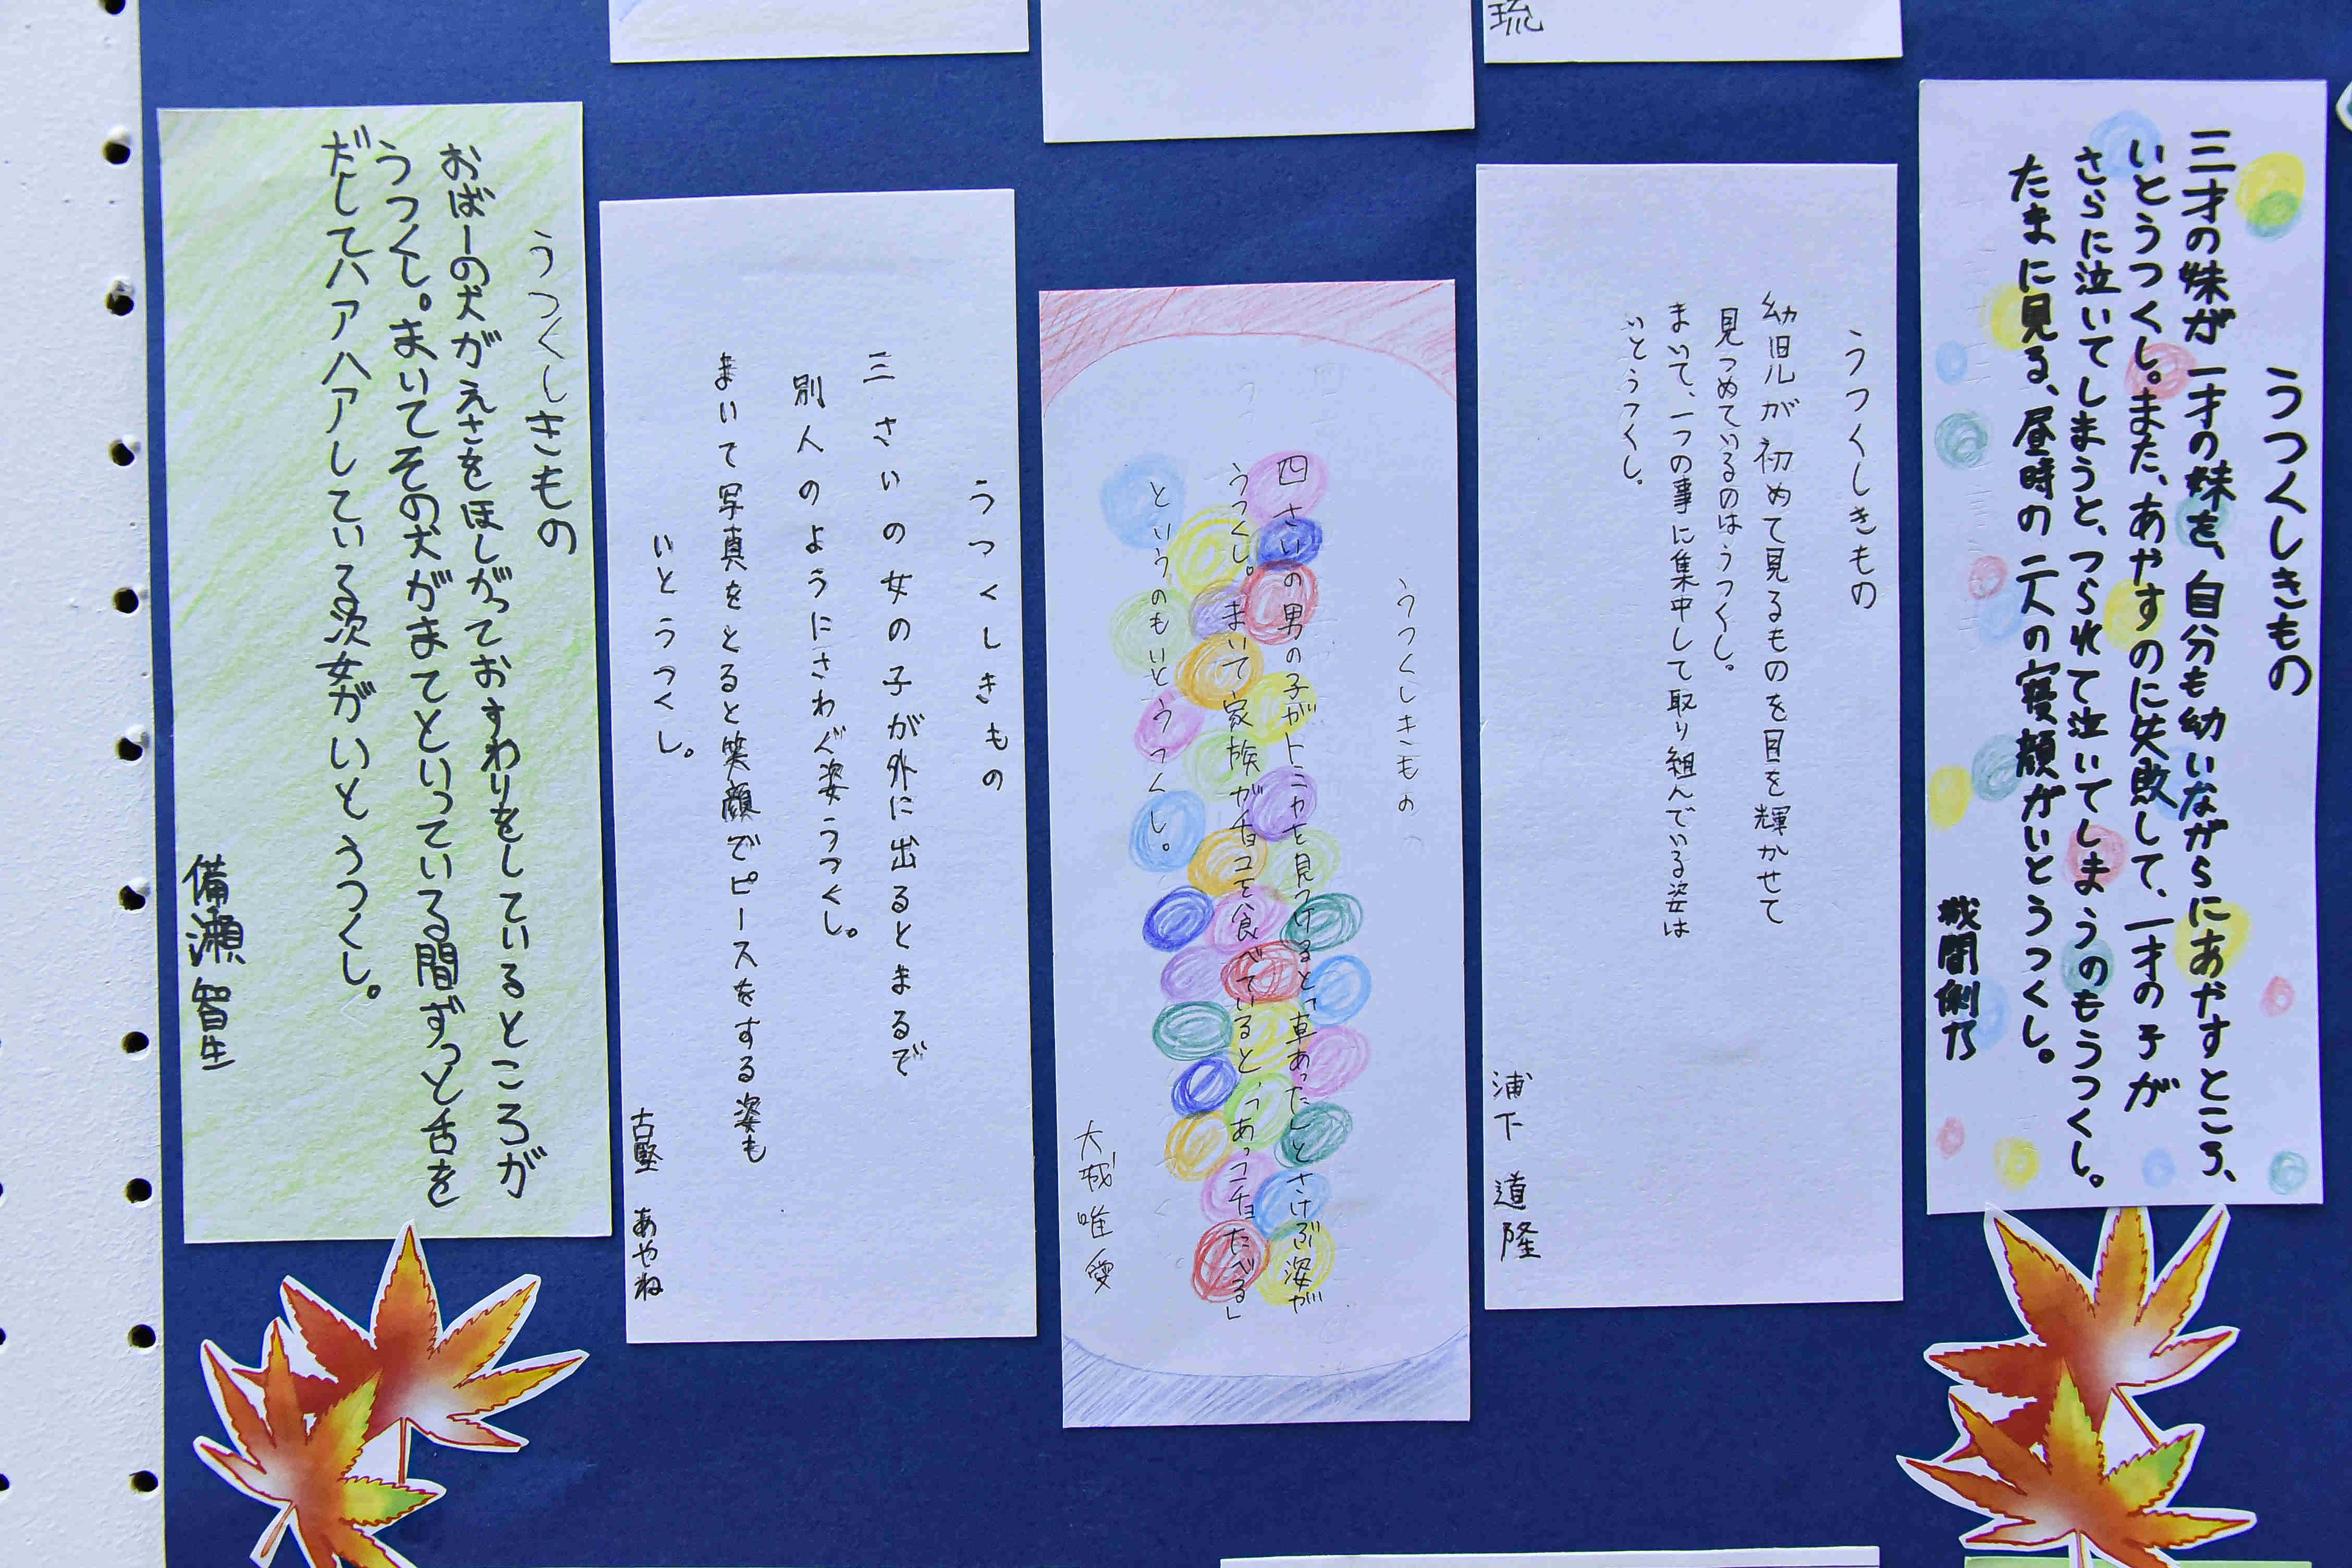 琉
うつくしきもの
三才の妹が一才の妹を、自分も幼いながらにあやすところ、
いとうつくし。また、あやすのに失敗して、一才の子が
さらに泣いてしまうと、つられて泣いてしまうのもうつくし。
たまに見る、昼時の二人の寝顔がいとうつくし。
城間 俐乃
うつくしきもの
幼児が初めて見るものを目を輝かせて
見つめているのはうつくし。
まいて、一つの事に集中して取り組んでいる姿は
いとうつくし。
浦下 道隆
うつくしきもの
四さいの男の子がトミカを見つけると「車あった」とさけぶ姿が
うつくし。まいて家族がチョコを食べていると、「あっコチョたべる」
というのもいとうつくし。
大城 唯愛
うつくしきもの
三さいの女の子が外に出るとまるで
別人のようにさわぐ姿うつくし。
まいて写真をとると笑顔でピースをする姿も
いとうつくし。
古堅 あやね
うつくしきもの
おばーの犬がえさをほしがっておすわりをしているところが
うつくし。まいてその犬がまてといっている間ずっと舌を
だしてハアハアしている次女がいとうつくし。
備瀬 智生